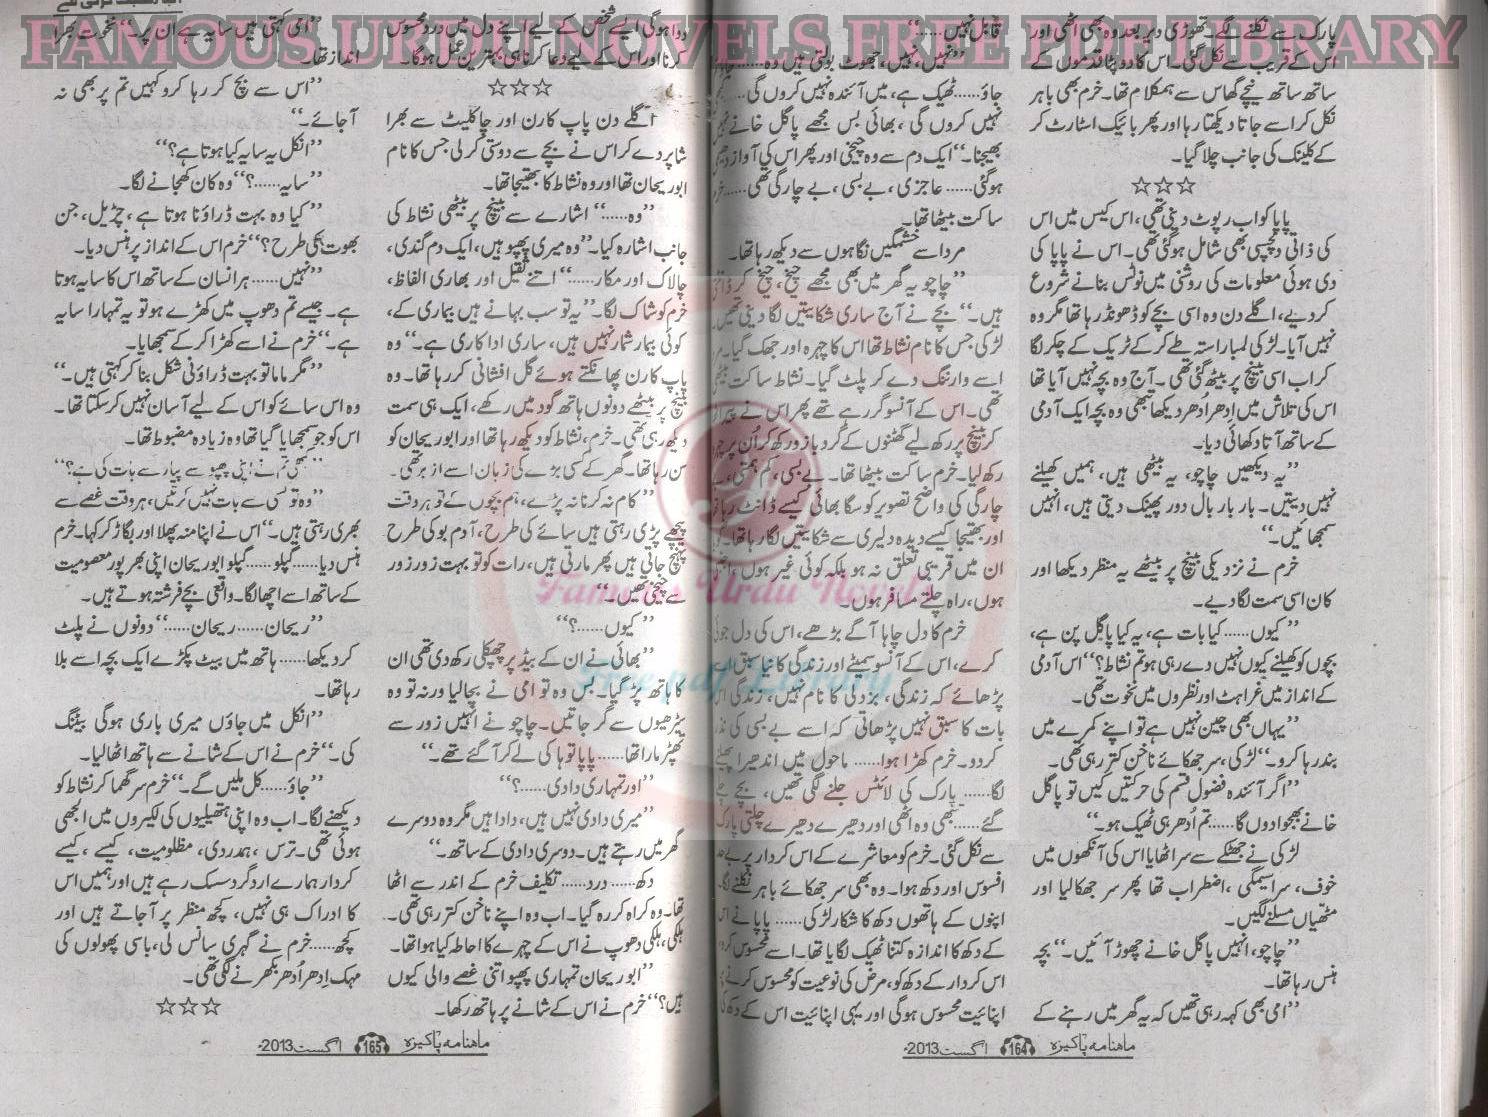 FAMOUS URDU NOVELS FREE PDF LIBRARY
پارک سے نکلنے لگے۔ تھوڑی دیر بعد وہ بھی اٹھی اور
اس کے قریب سے نکل گئی۔ اس کا دوپٹا قدموں کے
ساتھ ساتھ نیچے گھاس سے ہمکلام تھا۔ خرم بھی باہر
نکل کر اسے جاتا دیکھتا رہا اور پھر بائیک اسٹارٹ کر
کے کلینک کی جانب چلا گیا۔
☆☆☆
پاپا کو اب رپورٹ دینی تھی، اس کیس میں اس
کی ذاتی دلچسپی بھی شامل ہو گئی تھی۔ اس نے پاپا کی
دی ہوئی معلومات کی روشنی میں نوٹس بنانے شروع
کر دیے، اگلے دن وہ اسی بچے کو ڈھونڈ رہا تھا مگر وہ
نہیں آیا۔ لڑکی لمبا راستہ طے کر کے ٹریک کے چکر لگا
کر اب اسی بینچ پر بیٹھ گئی تھی۔ آج وہ بچہ نہیں آیا تھا
اس کی تلاش میں اِدھر اُدھر دیکھا تبھی وہ بچہ ایک آدمی
کے ساتھ آتا دکھائی دیا۔
”یہ دیکھیں چاچو، یہ بیٹھی ہیں، ہمیں کھیلنے
نہیں دیتیں۔ بار بار بال دور پھینک دیتی ہیں، انہیں
سمجھائیں۔“
خرم نے نزدیکی بینچ پر بیٹھے یہ منظر دیکھا اور
کان اسی سمت لگا دیے۔
”کیوں...... کیا بات ہے، یہ کیا پاگل پن ہے،
بچوں کو کھیلنے کیوں نہیں دے رہی ہو تم نشاط؟“ اس آدمی
کے انداز میں غراہٹ اور نظروں میں نخوت تھی۔
”یہاں بھی چین نہیں ہے تو اپنے کمرے میں
بند رہا کرو۔“ لڑکی، سر جھکائے ناخن کتر رہی تھی۔
”اگر آئندہ فضول قسم کی حرکتیں کیں تو پاگل
خانے بھجوا دوں گا...... تم اُدھر ہی ٹھیک ہو۔“
لڑکی نے جھٹکے سے سر اٹھایا اس کی آنکھوں میں
خوف، سراسیمگی، اضطراب تھا پھر سر جھکا لیا اور
مٹھیاں مسلنے لگیں۔
”چاچو، انہیں پاگل خانے چھوڑ آئیں۔“ بچہ
ہنس رہا تھا۔
”امی بھی کہہ رہی تھیں کہ یہ گھر میں رہنے کے
قابل نہیں......“
”نہیں، نہیں، جھوٹ بولتی ہیں وہ......
جاؤ...... ٹھیک ہے، میں آئندہ نہیں کروں گی......
نہیں کروں گی، بھائی بس مجھے پاگل خانے
بھیجنا۔“ ایک دم سے وہ چیخی اور پھر اس کی آواز دھیمی
ہو گئی...... عاجزی، بے بسی، بے چارگی تھی......
ساکت بیٹھا تھا۔
مرد اسے خشمگیں نگاہوں سے دیکھ رہا تھا۔
”چاچو یہ گھر میں بھی مجھے چیخ، چیخ کر ڈانٹتی
ہیں۔“ بچے نے آج ساری شکایتیں لگا دینی تھیں۔
لڑکی جس کا نام نشاط تھا اس کا چہرہ اور جھک گیا۔
اسے وارننگ دے کر پلٹ گیا۔ نشاط ساکت بیٹھی
تھی۔ اس کے آنسو گر رہے تھے پھر اس نے پیر
کر بینچ پر رکھ لیے گھٹنوں کے گرد بازو رکھ کر اُن پر
رکھ لیا۔ خرم ساکت بیٹھا تھا۔ بے بسی، کم ہمتی،
چارگی کی واضح تصویر کو سگا بھائی کیسے ڈانٹ رہا
اور بھتیجا کیسے دیدہ دلیری سے شکایتیں لگا رہا تھا۔
ان میں قریبی تعلق نہ ہو بلکہ کوئی غیر ہوں،
ہوں، راہ چلتے مسافر ہوں۔
خرم کا دل چاہا آگے بڑھے، اس کی دل جوئی
کرے، اس کے آنسو سمیٹے اور زندگی کا نیا سبق
پڑھائے کہ زندگی، بزدلی کا نام نہیں، زندگی اس
بات کا سبق نہیں پڑھاتی کہ اسے بے بسی کی نذر
کر دو۔ خرم کھڑا ہوا...... ماحول میں اندھیرا پھیلنے
لگا...... پارک کی لائٹس جلنے لگی تھیں، بچے
گئے...... تبھی وہ اٹھی اور دھیرے دھیرے چلتی پارک
سے نکل گئی۔ خرم کو معاشرے کے اس کردار پر بے حد
افسوس اور دکھ ہوا۔ وہ بھی سر جھکائے باہر نکلنے لگا۔
اپنوں کے ہاتھوں دکھ کا شکار لڑکی...... پاپا نے اس
کے دکھ کا اندازہ کتنا ٹھیک لگایا تھا۔ اسے محسوس کرو
اس کردار کے دکھ کو، مرض کی نوعیت کو محسوس کرنے
اپنائیت محسوس ہو گی اور یہی اپنائیت اس کے دکھ کی
ماہنامہ پاکیزہ 164 اگست 2013ء
دوا ہو گی ایسے شخص کے لیے اپنے دل میں درد محسوس
کرنا اور اس کے لیے دعا کرنا ہی بہترین عمل ہو گا۔
☆☆☆
اگلے دن پاپ کارن اور چاکلیٹ سے بھرا
شاپر دے کر اس نے بچے سے دوستی کر لی جس کا نام
ابوریحان تھا اور وہ نشاط کا بھتیجا تھا۔
”وہ......“ اشارے سے بینچ پر بیٹھی نشاط کی
جانب اشارہ کیا۔ ”وہ میری پھپو ہیں، ایک دم گندی،
چالاک اور مکار......“ اتنے ثقیل اور بھاری الفاظ،
خرم کو شاک لگا۔ ”یہ تو سب بہانے ہیں بیماری کے،
کوئی بیمار شمار نہیں ہیں، ساری اداکاری ہے۔“ وہ
پاپ کارن پھانکتے ہوئے گل افشانی کر رہا تھا۔ وہ
بینچ پر بیٹھے دونوں ہاتھ گود میں رکھے، ایک ہی سمت
دیکھ رہی تھی۔ خرم، نشاط کو دیکھ رہا تھا اور ابوریحان کو
سن رہا تھا۔ گھر کے کسی بڑے کی زبان اسے ازبر تھی۔
”کام نہ کرنا نہ پڑے، ہم بچوں کے تو ہر وقت
پیچھے پڑی رہتی ہیں سائے کی طرح، آدم بو کی طرح
پہنچ جاتی ہیں پھر مارتی ہیں، رات کو تو بہت زور زور
سے چیخی تھیں۔“
”کیوں......؟“
”بھائی نے ان کے بیڈ پر چھپکلی رکھ دی تھی ان
کا ہاتھ پڑ گیا۔ بس وہ تو امی نے بچا لیا ورنہ تو وہ
سیڑھیوں سے گر جاتیں۔ چاچو نے انہیں زور سے
تھپڑ مارا تھا...... پاپا تو ہاکی لے کر آ گئے تھے۔“
”اور تمہاری دادی......؟“
”میری دادی نہیں ہیں، دادا ہیں مگر وہ دوسرے
گھر میں رہتے ہیں۔ دوسری دادی کے ساتھ۔“
دکھ...... درد...... تکلیف خرم کے اندر سے اٹھا
تھا۔ وہ کراہ کر رہ گیا۔ اب وہ اپنے ناخن کتر رہی تھی۔
ہلکی، ہلکی دھوپ نے اس کے چہرے کا احاطہ کیا ہوا تھا۔
”ابوریحان تمہاری پھپو اتنی غصے والی کیوں
ہیں؟“ خرم نے اس کے شانے پر ہاتھ رکھا۔
”امی کہتی ہیں سایہ ہے ان پر۔“ نخوت بھرا
انداز تھا۔
”اس سے بچ کر رہا کرو کہیں تم پر بھی نہ
آ جائے۔“
”انکل یہ سایہ کیا ہوتا ہے؟“
”سایہ......؟“ وہ کان کھجانے لگا۔
”کیا وہ بہت ڈراؤنا ہوتا ہے، چڑیل، جن
بھوت کی طرح؟“ خرم اس کے انداز پر ہنس دیا۔
”نہیں...... ہر انسان کے ساتھ اس کا سایہ ہوتا
ہے۔ جیسے تم دھوپ میں کھڑے ہو تو یہ تمہارا سایہ
ہے۔“ خرم نے اسے کھڑا کر کے سمجھایا۔
”مگر ماما تو بہت ڈراؤنی شکل بنا کر کہتی ہیں۔“
وہ اس سائے کو اس کے لیے آسان نہیں کر سکتا تھا۔
اس کو جو سمجھایا گیا تھا وہ زیادہ مضبوط تھا۔
”کبھی تم نے اپنی پھپو سے پیار سے بات کی ہے؟“
”وہ تو کسی سے بات نہیں کرتیں، ہر وقت غصے سے
بھری رہتی ہیں۔“ اس نے اپنا منہ پھلا اور بگاڑ کر کہا۔ خرم
ہنس دیا...... گپلو...... گپلو ابوریحان اپنی بھرپور معصومیت
کے ساتھ اسے اچھا لگا۔ واقعی بچے فرشتہ ہوتے ہیں۔
”ریحان...... ریحان......“ دونوں نے پلٹ
کر دیکھا...... ہاتھ میں بیٹ پکڑے ایک بچہ اسے بلا
رہا تھا۔
”انکل میں جاؤں میری باری ہو گی بیٹنگ
کی۔“ خرم نے اس کے شانے سے ہاتھ اٹھا لیا۔
”جاؤ...... کل ملیں گے۔“ خرم سر گھما کر نشاط کو
دیکھنے لگا۔ اب وہ اپنی ہتھیلیوں کی لکیروں میں الجھی
ہوئی تھی۔ ترس، ہمدردی، مظلومیت، کیسے، کیسے
کردار ہمارے اردگرد سسک رہے ہیں اور ہمیں اس
کا ادراک ہی نہیں، کچھ منظر پر آ جاتے ہیں اور
کچھ...... خرم نے گہری سانس لی، باسی پھولوں کی
مہک اِدھر اُدھر بکھرنے لگی تھی۔
☆☆☆
ماہنامہ پاکیزہ 165 اگست 2013ء
Famous Urdu Novels
Free pdf Library